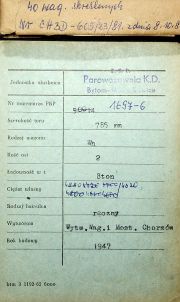 40 wag. skreślonych
Nr CH3D-665/23/81 z dnia 8.10.8
Jednostka służbowa
Parowozownia K.D.
Bytom
Nr inwentarza PKP
1657-6
Szerokość toru
785 mm
Rodzaj wagonu
Wh
Ilość osi
2
Ładowność w t
8ton
Ciężar własny
4400/4420
Rodzaj hamulca
ręczny
Wytwórnia
Wytw.Wag.i Most. Chorzów
Rok budowy
1947